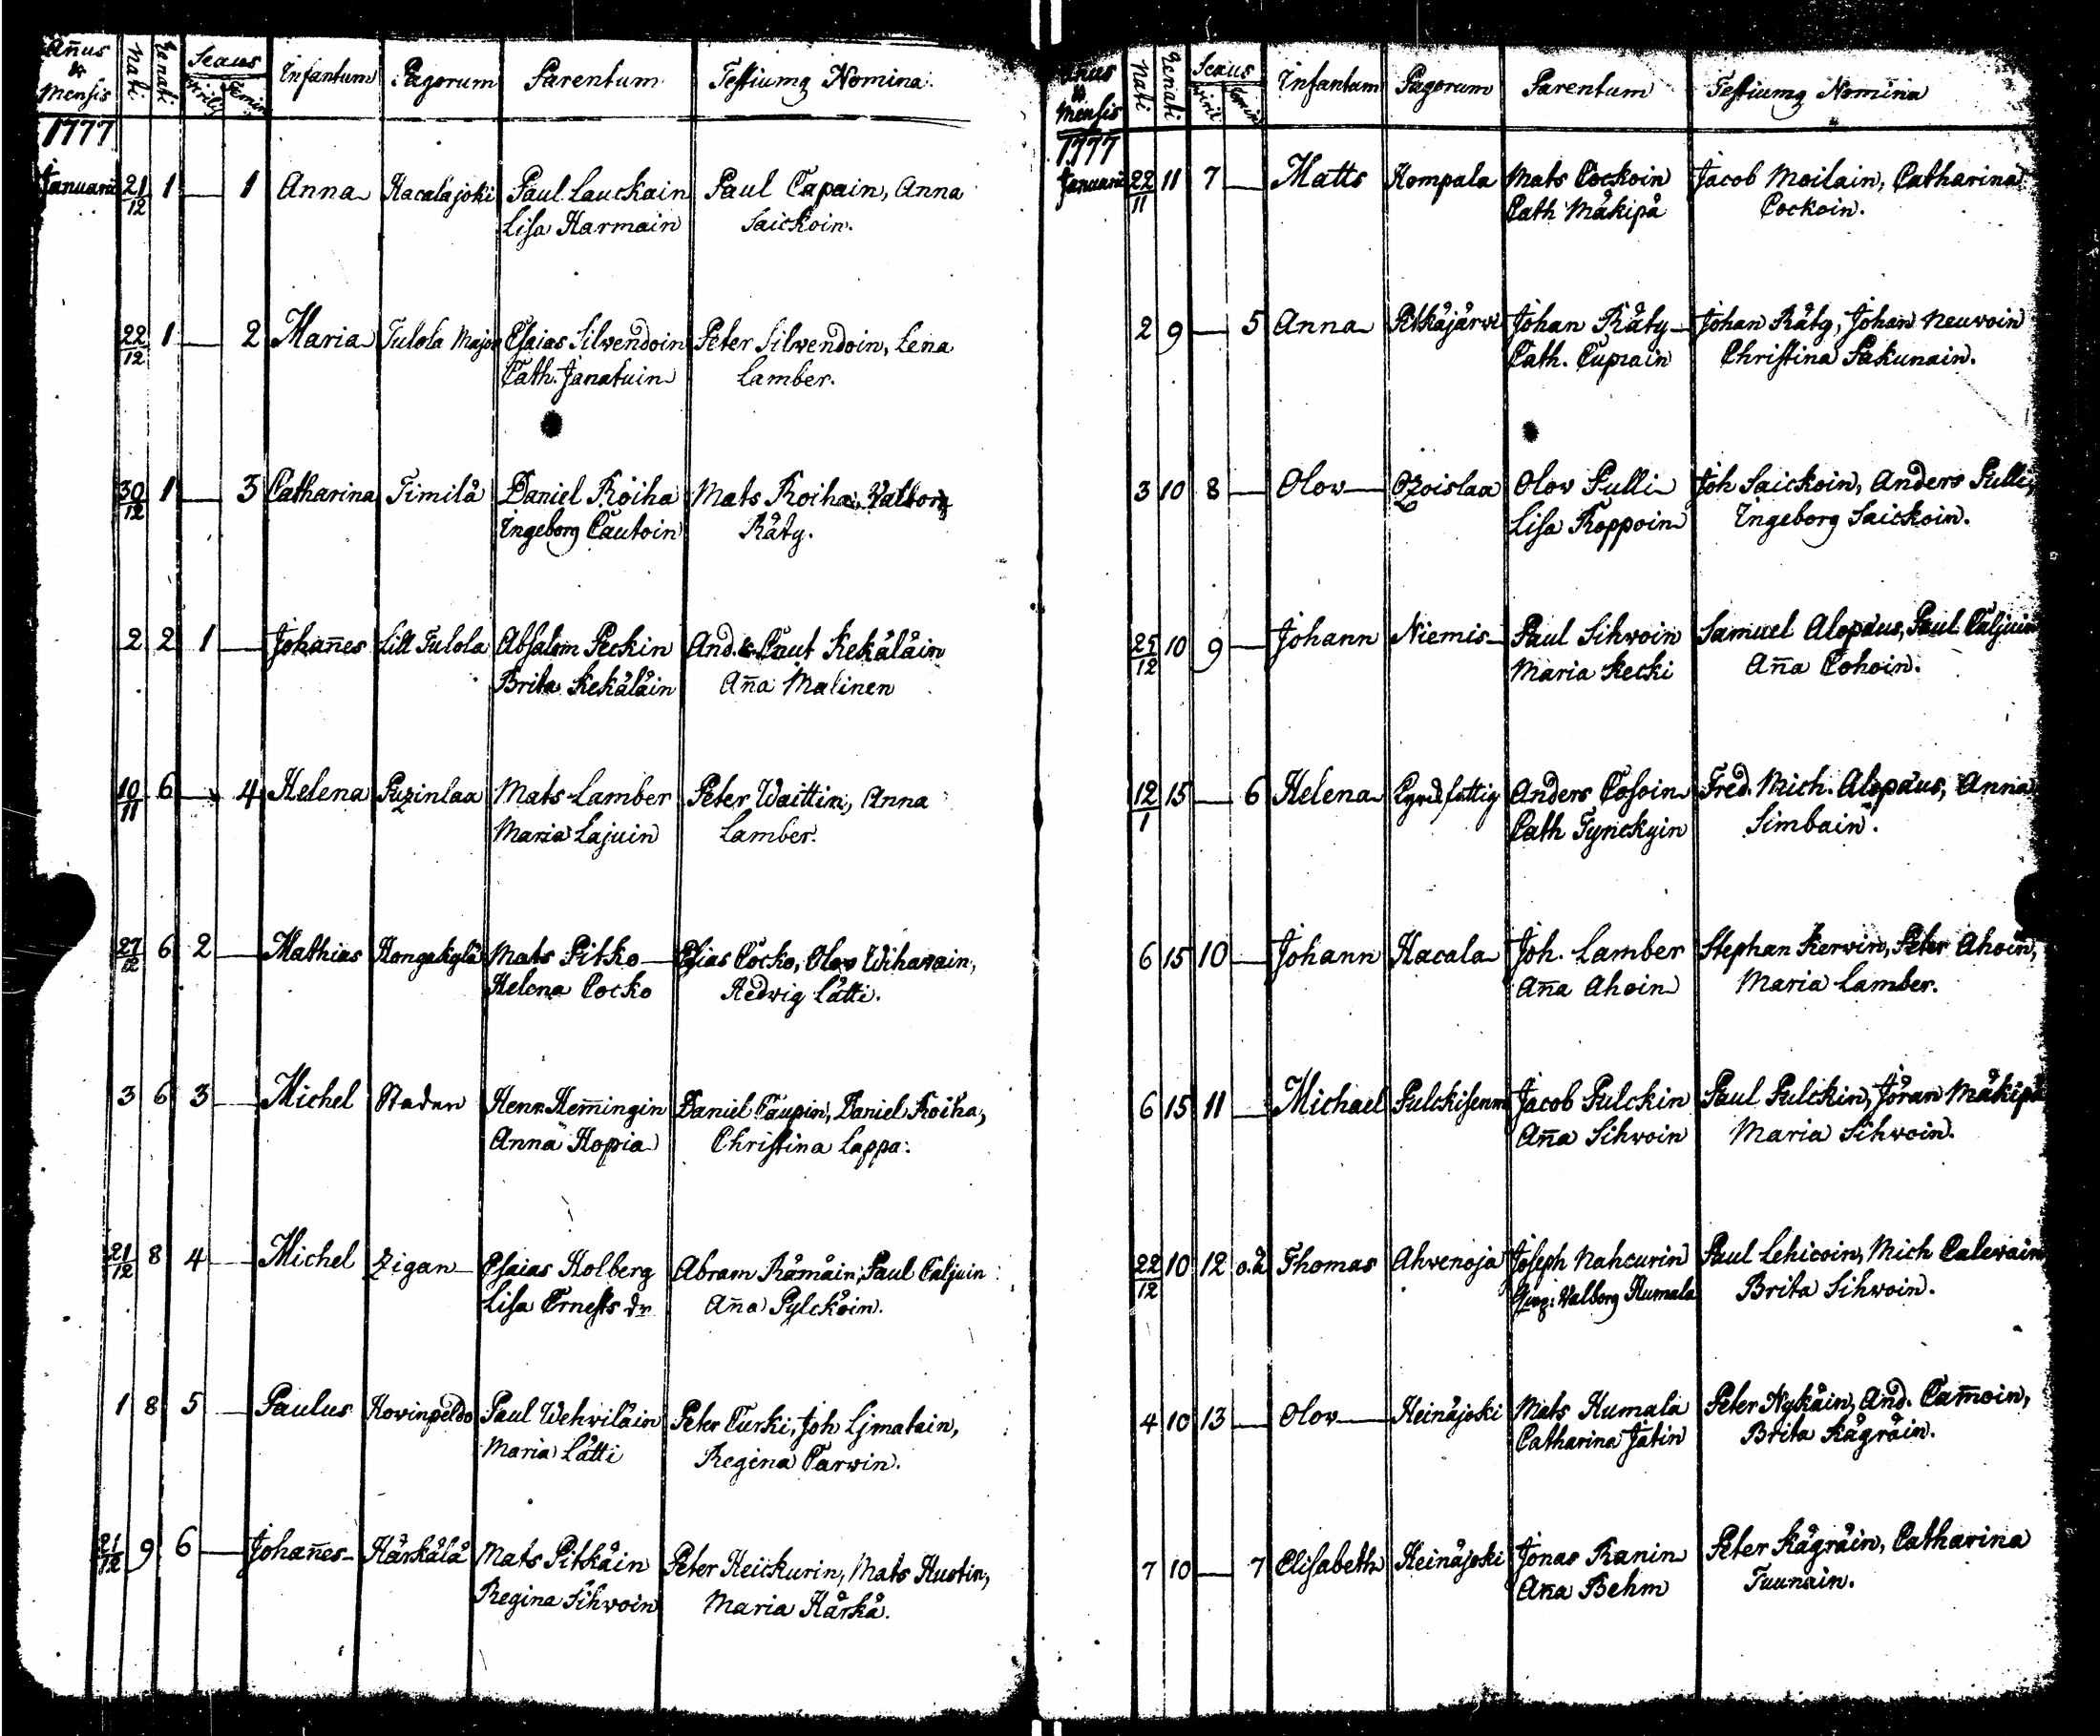 Añus & Mensis Nati Renati Sexus Virilis Femin Infantum Pagorum Parentum Testiumq Nomina
1777
Januarii 21/12 1 — 1 Anna Hacalajoki Paul Lauckain Paul Capain, Anna
Lisa Harmain Saickoin.
22/12 1 — 2 Maria Tulola Major Esaias Silvendoin Peter Silvendoin, Lena
Cath. Janatuin Lamber.
30/12 1 — 3 Catharina Timilå Daniel Roiha Mats Roiha, Valborg
Ingeborg Cautoin Råty.
2 2 1 — Johañes Lill Tulola Absalom Peckin And. & Cnut Kekäläin
Brita Kekäläin Aña Malinen
10/11 6 — 4 Helena Puzinlaa Mats Lamber Peter Waittin, Anna
Maria Lajuin Lamber.
27/12 6 2 — Mathias Kangakylå Mats Pitko Elias Cocko, Olov Wihavain,
Helena Cocko Hedvig Låtti.
3 6 3 — Michel Staden Henr. Hem̄ingin Daniel Caupin, Daniel Roiha,
Anna Hopia Christina Lappa.
21/12 8 4 — Michel Zigan Esaias Holberg Abram Råmåin, Paul Caljuin
Lisa Ernests dr Aña Pylckoin.
1 8 5 — Paulus Kovinpeldo Paul Wehviläin Peter Turki, Joh Ljmatain,
Maria Låtti Regina Tarvin.
21/12 9 6 — Johañes Hårkålå Mats Pitkåin Peter Heickurin, Mats Hustin,
Regina Sihvoin Maria Hårkå.
Mensis Nati Renati Sexus Viril Femin Infantum Pagorum Parentum Testiumq Nomina
1777
Januarii 22/11 11 7 — Matts Kompala Mats Cockoin Jacob Moilain, Catharina
Cath Måkipå Cockoin.
2 9 — 5 Anna Pitkåjårvi Johan Råty Johan Råty, Johan Neuvoin
Cath. Cupiain Christina Pakunain.
3 10 8 — Olov Ozoislaa Olov Pulli Joh Saickoin, Anders Pulli,
Lisa Roppoin Ingeborg Saickoin.
25/12 10 9 — Johann Niemis Paul Sihvoin Samuel Alopæus, Paul Caljuin
Maria Kecki Aña Cohoin.
12/1 15 — 6 Helena fattig Anders Cosoin Fred. Mich. Alopæus, Anna
Cath Tynckyin Simbain.
6 15 10 — Johann Hacala Joh. Lamber Stephan Kervin, Peter Ahoin,
Aña Ahoin Maria Lamber.
6 15 11 — Michael Pulckisenm Jacob Pulckin Paul Pulckin, Jöran Måkipå
Aña Sihvoin Maria Sihvoin.
22/12 10 12 o.ä Thomas Ahvenoja Joseph Nahcurin Paul Lehicoin, Mich Calevain
Valborg Humala Brita Sihvoin.
4 10 13 — Olov Heinåjoki Mats Humala Peter Nykåin, And. Cam̄oin,
Catharina Jatin Brita Kågråin.
7 10 — 7 Elisabeth Heinåjoki Jonas Ranin Peter Kågråin, Catharina
Aña Behm Tuunain.